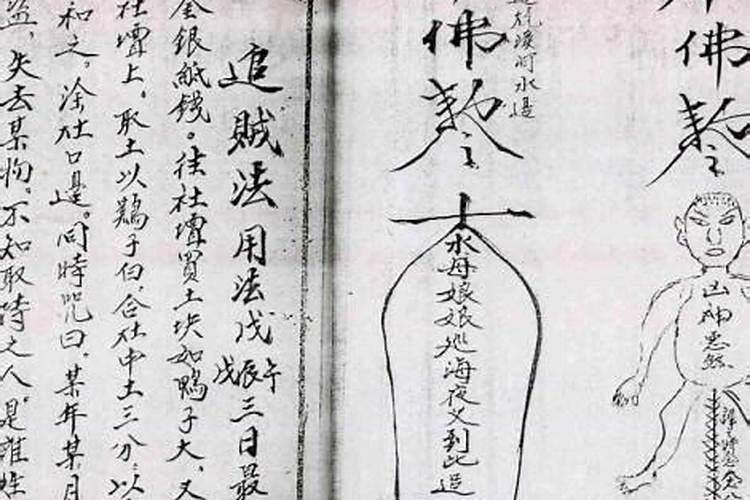 佛敕
山神惡煞
溪河水邊
佛敕
水母娘娘巡海夜叉到此
追賊法 用法戊午戊辰三日最
金銀紙錢。往社壇買土塊如鴨子大。又
社壇上。取土以鷄子白。合社中土三分。以
和之。塗社口邊。同時咒曰。某年某月
盜。失去某物。不知取時之人。是誰姓